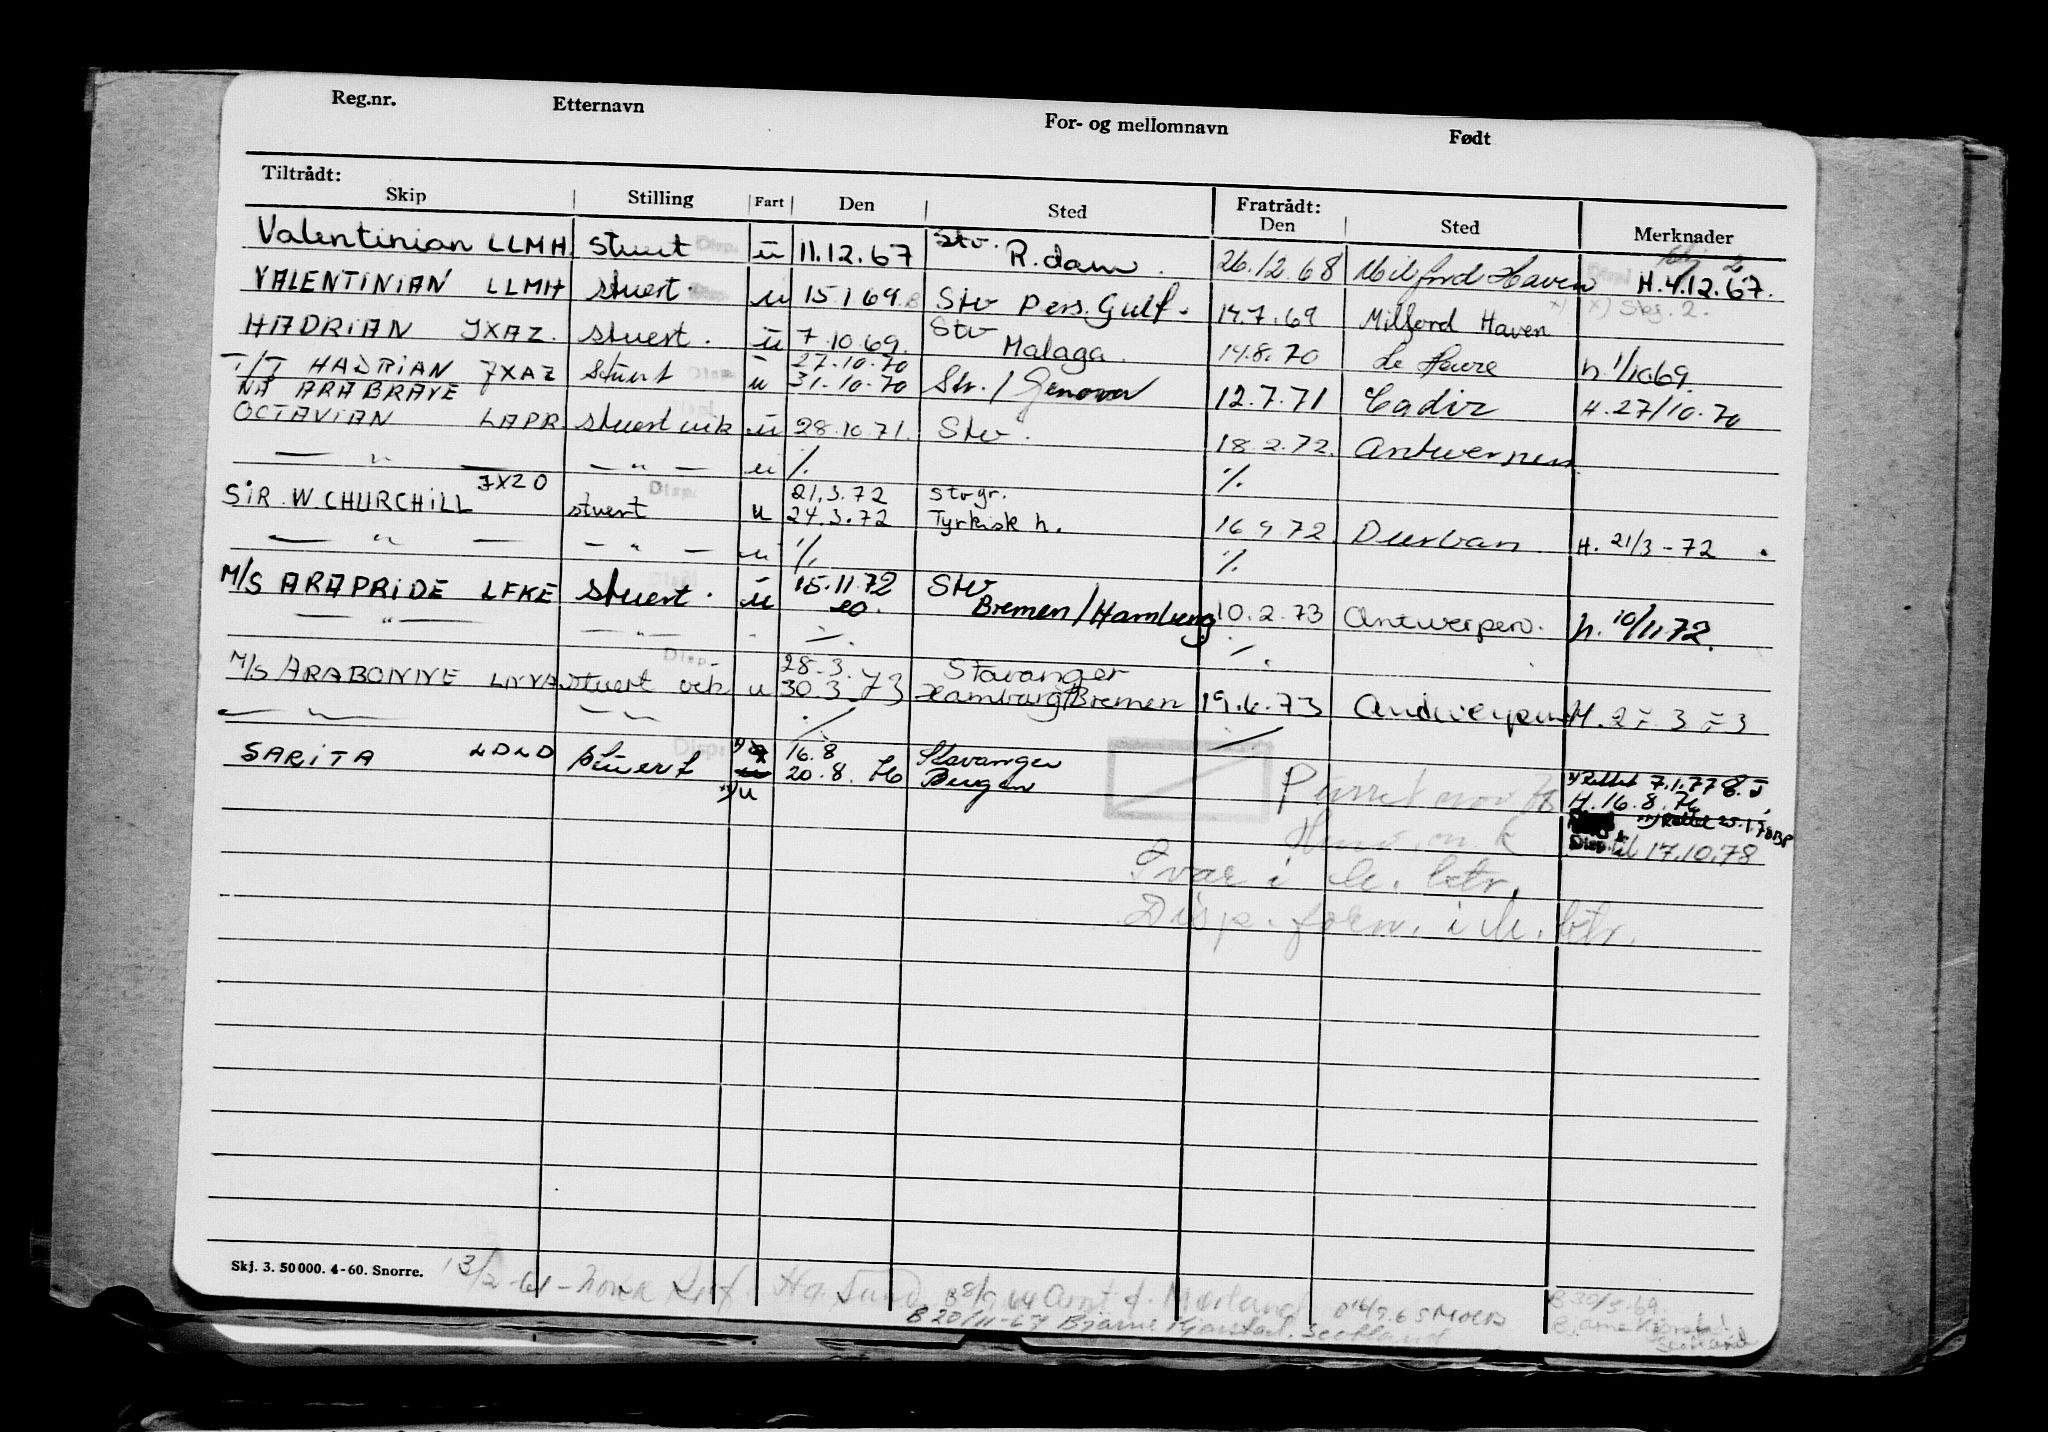 Reg.nr. Etternavn For- og mellomnavn Født
Tiltrådt: Fratrådt:
Skip Stilling Fart Den Sted Den Sted Merknader
Valentinian LLMH. stuert Disp. ū 11.12.67 Stv. R.dam. 26.12.68 Milford Haven H.4.12.67.
VALENTINIAN LLMH stuert. u 15.1 69. Stv Pers. Gulf. 14.7.69 Milford Haven x) Skj. 2.
HADRIAN JXAZ. stuert. ū 7.10.69. Stv Malaga. 14.8.70 Le Havre h. 1/10 69.
T/T HADRIAN JXAZ stuert Disp. u 27.10.70
NÅ ARABRAVE 31.10.70 Stv. / Genova 12.7.71 Cadiz H. 27/10.70
OCTAVIAN LAPR. stuert vik ū 28.10.71. Stv. 18.2.72. Antwerpen
— " — — " — u ./. ./.
SIR W. CHURCHILL JXZO stuert Disp. u 21.3.72 Stvgr.
24.3.72 Tyrkisk h. 16.9.72. Durban H. 21/3-72.
— " — — " — u ./. ./.
M/S ARAPRIDE LFKE stuert. ū 15.11.72 Stv
20. Bremen/Hamburg 10.2.73 Antwerpen. h. 10/11.72.
— " — — " — ./. ./.
M/S ARABONNE stuert vik u 28.3. Stavanger
30.3.73 Hamburg/Bremen 19.6.73 Antwerpen
— " — — " — ./. ./.
SARITA LDLD stuert Disp. 16.8 Stavanger
20.8.76 Bergen x) Rettet 7.1.77
u H. 16.8.76
Purret nov. 78
Disp. til 17.10.78
Svar i
Disp. forn. i
Skj. 3. 50 000. 4-60. Snorre. 13/2-61 -
B 20/11-67 Bjarne Kjørstad. Scotland
B 30/5.69.